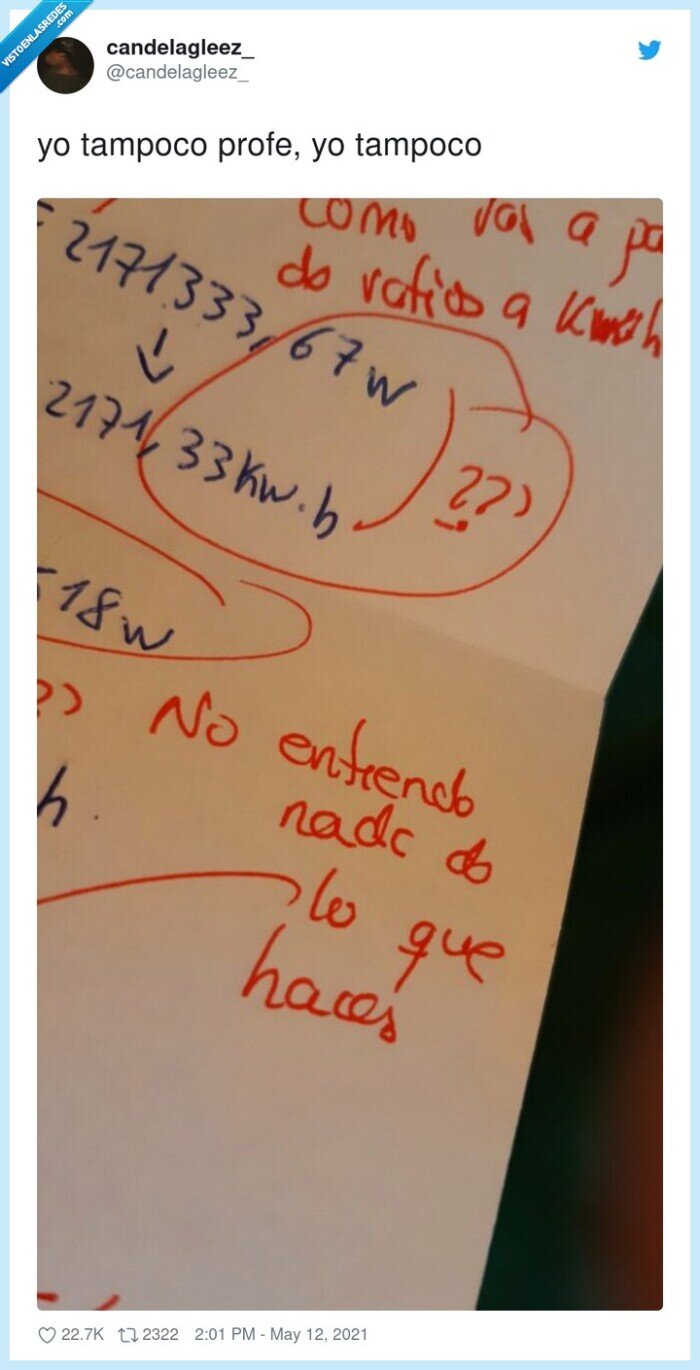 VISTOENLASREDES
.com
candelagleez_
@candelagleez_
yo tampoco profe, yo tampoco
como vas a pa
= 2171333,67w
de vatios a Kwxh
2171,33Kw.h
???
18w
?? No entiendo
nada de
h.
lo que
haces
22.7K 2322 2:01 PM - May 12, 2021